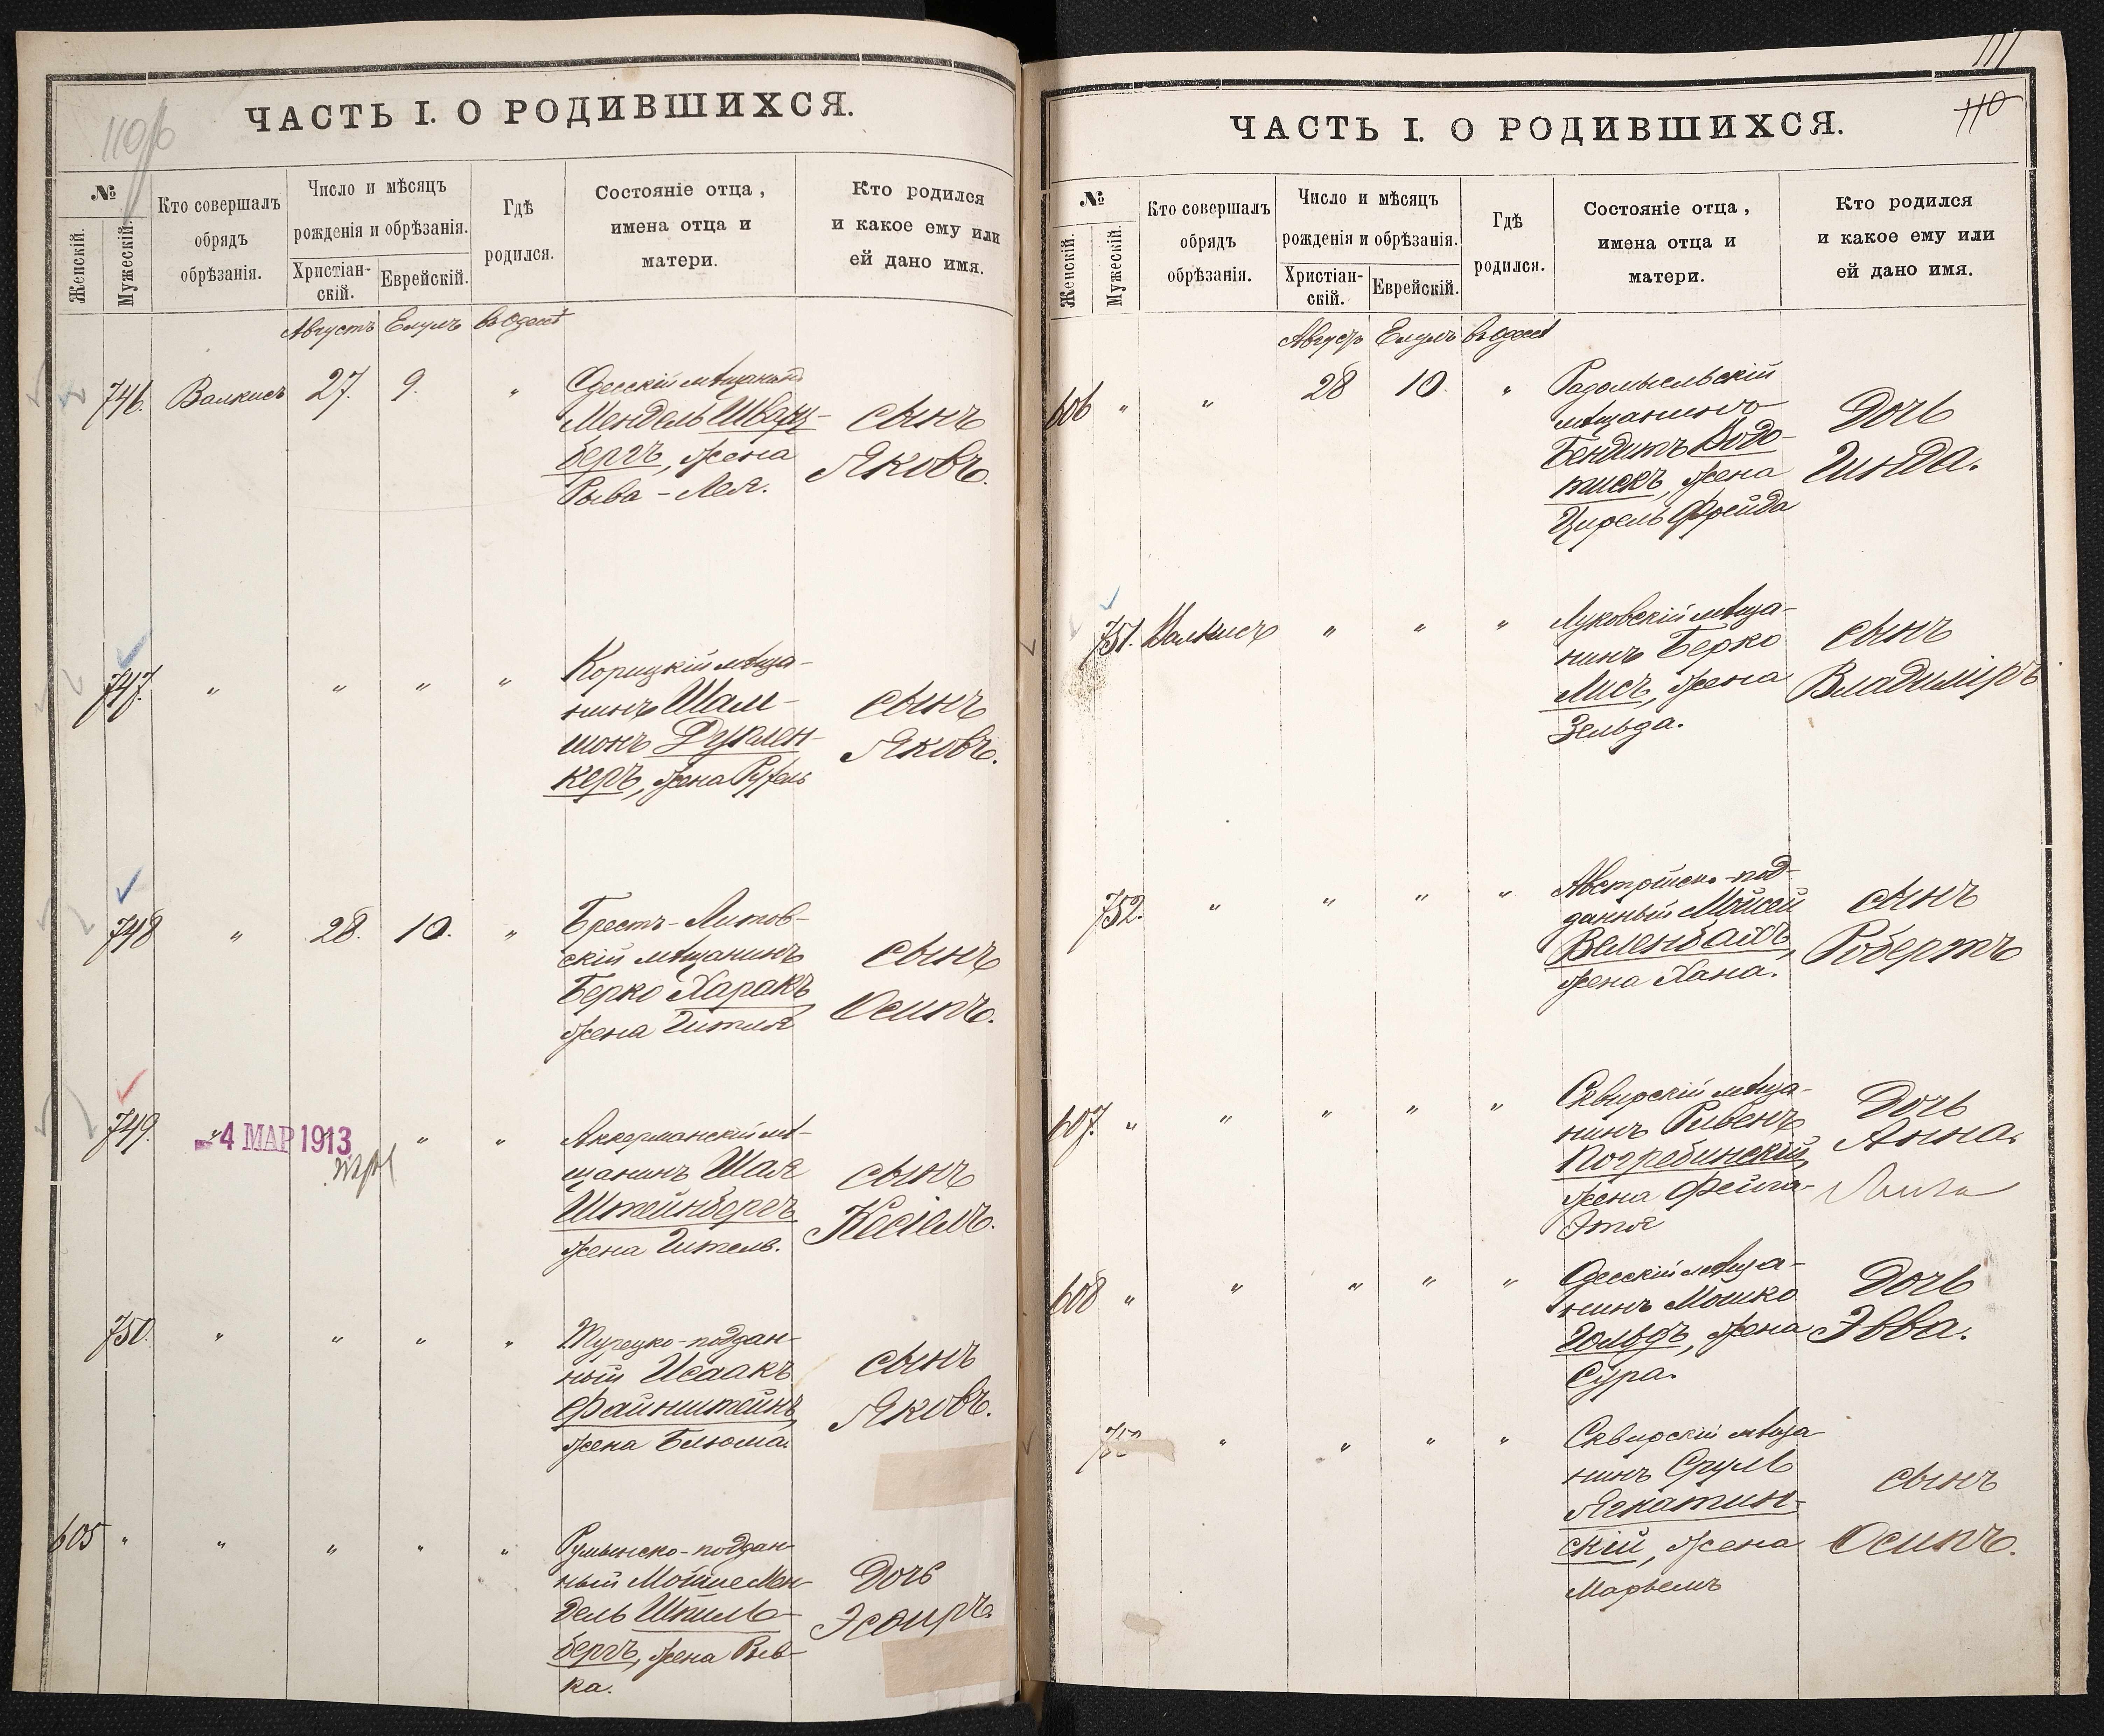 110 об
ЧАСТЬ I. О РОДИВШИХСЯ.
№
Женскій.
Мужескій.
Кто совершалъ
обрядъ
обрѣзанія.
Число и мѣсяцъ
рожденія и обрѣзанія.
Христіан-
скій.
Еврейскій.
Гдѣ
родился.
Состояніе отца,
имена отца и
матери.
Кто родился
и какое ему или
ей дано имя.
Августъ Елулъ въ Одессѣ
746. Валкисъ 27. 9. "
Одесскій мѣщанинъ
Мендель Шварц-
бергъ, жена
Рыва-Лея.
сынъ
Яковъ.
747. " " " "
Корицкій мѣща-
нинъ Шам-
шонъ Дуклен-
керъ, жена Рухель
сынъ
Яковъ.
748 " 28. 10. "
Брестъ-Литов-
скій мѣщанинъ
Берко Харакъ
жена Гитля
сынъ
Осипъ.
749. " " " "
-4 МАР 1913
Аккерманскій мѣ-
щанинъ Шая
Штейнбергъ
жена Гитель.
сынъ
Косіелъ.
750. " " " "
Турецко-поддан-
ный Исаакъ
Файнштейнъ,
жена Блюма.
сынъ
Яковъ.
605 " " " " "
Румынско-поддан-
ный Мойше Мен-
дель Шпиль-
бергъ, жена Рив-
ка.
Дочь
Эсѳирь.
111
110
ЧАСТЬ I. О РОДИВШИХСЯ.
№
Женскій.
Мужескій.
Кто совершалъ
обрядъ
обрѣзанія.
Число и мѣсяцъ
рожденія и обрѣзанія.
Христіан-
скій.
Еврейскій.
Гдѣ
родился.
Состояніе отца,
имена отца и
матери.
Кто родился
и какое ему или
ей дано имя.
Августъ Елулъ въ Одессѣ
606 " " 28 10. "
Радомысльскій
мѣщанинъ
Бендитъ Водо-
тискъ, жена
Цирель Фрейда
Дочь
Гинда.
751. Валкисъ " " "
Луковскій мѣща-
нинъ Берко
Лисъ, жена
Зельда.
сынъ
Владиміръ
752. " " " "
Австрійско-под-
данный Мойсей
Веленбахъ,
жена Хана.
сынъ
Робертъ
607. " " " " "
Сквирскій мѣща-
нинъ Рувенъ
Погребинскій,
жена Фейга-
Этя
Дочь
Анна.
608 " " " " "
Одесскій мѣща-
нинъ Мошко
Гольдъ, жена
Сура.
Дочь
Эвва.
753 " " " "
Сквирскій мѣща
нинъ Сруль
Ягкатин-
скій, жена
Марьемъ
сынъ
Осипъ.